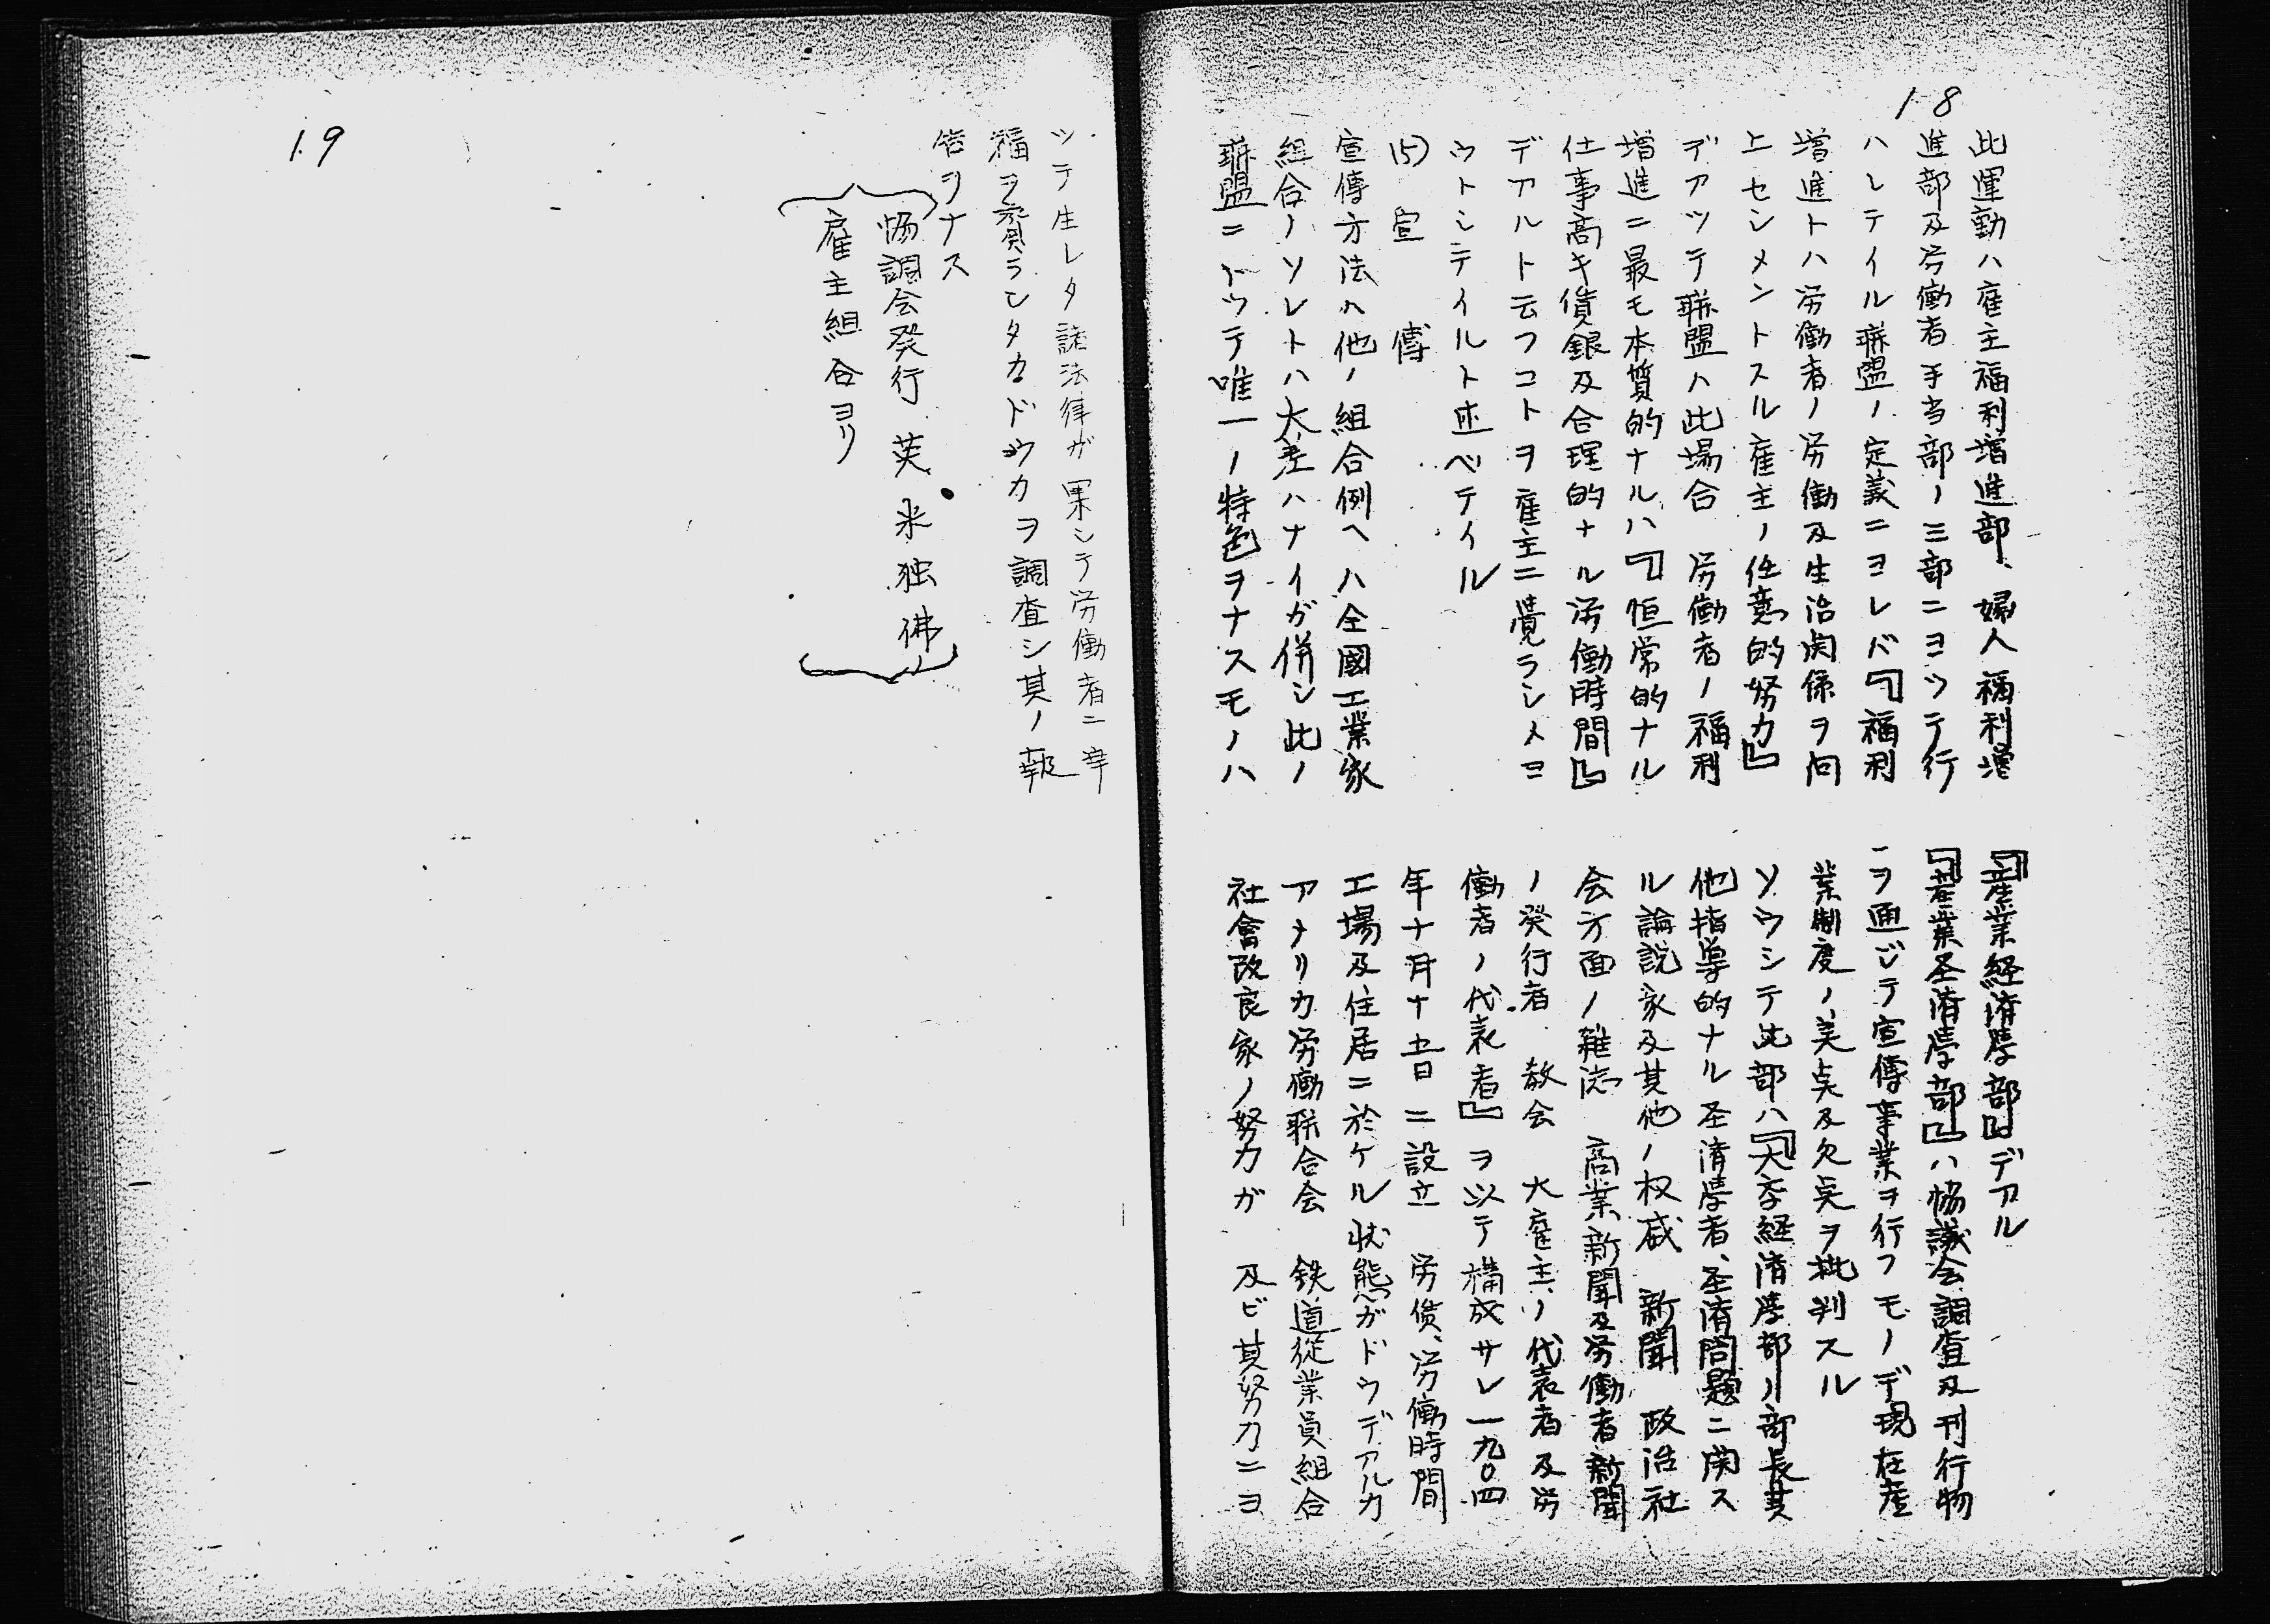 18
此運動ハ雇主福利増進部、婦人福利増
進部及労働者手当部ノ三部ニヨツテ行
ハレテイル聯盟ノ定義ニヨレバ『福利
増進トハ労働者ノ労働及生活関係ヲ向
上センメントスル雇主ノ任意的努力』
デアツテ聯盟ハ此場合 労働者ノ福利
増進ニ最モ本質的ナルハ『恒常的ナル
仕事高キ賃銀及合理的ナル労働時間』
デアルト云フコトヲ雇主ニ覚ラシメヨ
ウトシテイルト述ベテイル
(5) 宣 傳
宣傳方法ハ他ノ組合例ヘハ全國工業家
組合ノソレトハ大差ハナイガ併シ此ノ
聯盟ニトツテ唯一ノ特色ヲナスモノハ
『産業経済學部』デアル
『産業圣済學部』ハ協議会調査及刊行物
ヲ通ジテ宣傳事業ヲ行フモノデ現在産
業制度ノ美点及欠点ヲ批判スル
ソウシテ此部ハ『大学経済學部ノ部長其
他指導的ナル圣済學者、圣済問題ニ関ス
ル論説家及其他ノ权威 新聞 政治社
会方面ノ雑誌 商業新聞及労働者新聞
ノ発行者 教会 大雇主ノ代表者及労
働者ノ代表者』ヲ以テ構成サレ一九〇四
年十月十五日ニ設立 労賃、労働時間
工場及住居ニ於ケル状態ガドウデアルカ
アメリカ労働聯合会 鉄道従業員組合
社會改良家ノ努力ガ 及ビ其努力ニヨ
ツテ生レタ諸法律ガ果シテ労働者ニ幸
福ヲ齎ラシタカドウカヲ調査シ其ノ報
告ヲナス
協調会発行 英米独佛ノ
雇主組合ヨリ
19